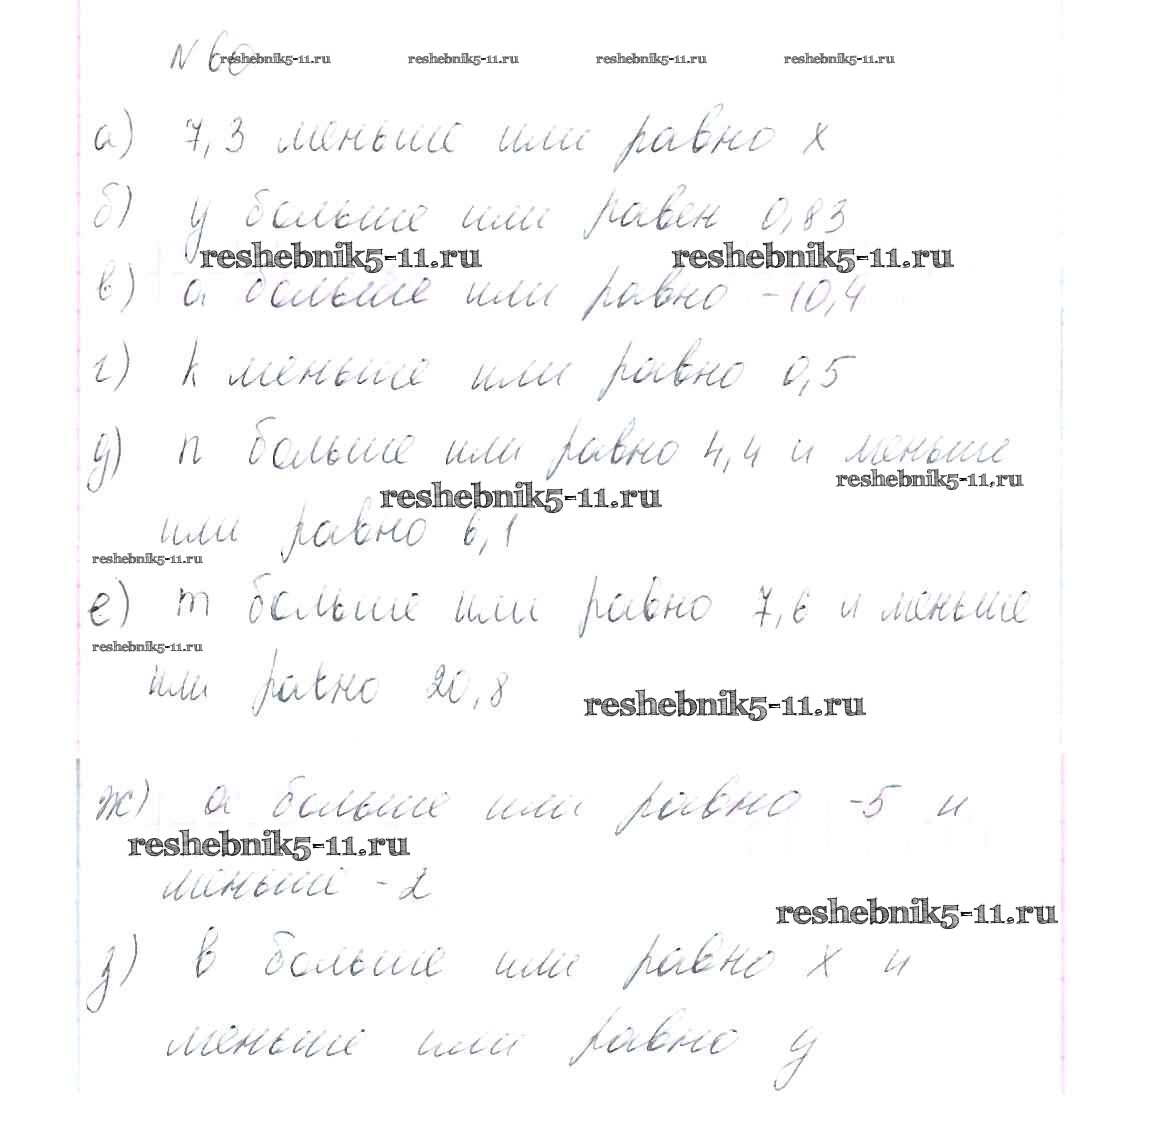 N 60
reshebnik5-11.ru reshebnik5-11.ru reshebnik5-11.ru reshebnik5-11.ru
а) 7,3 меньше или равно x
б) y больше или равен 0,83
reshebnik5-11.ru reshebnik5-11.ru
в) a больше или равно -10,4
г) k меньше или равно 0,5
д) n больше или равно 4,4 и меньше
reshebnik5-11.ru reshebnik5-11.ru
или равно 6,1
reshebnik5-11.ru
е) m больше или равно 7,6 и меньше
reshebnik5-11.ru
или равно 20,8
reshebnik5-11.ru
ж) a больше или равно -5 и
reshebnik5-11.ru
меньше -2
reshebnik5-11.ru
з) в больше или равно x и
меньше или равно y